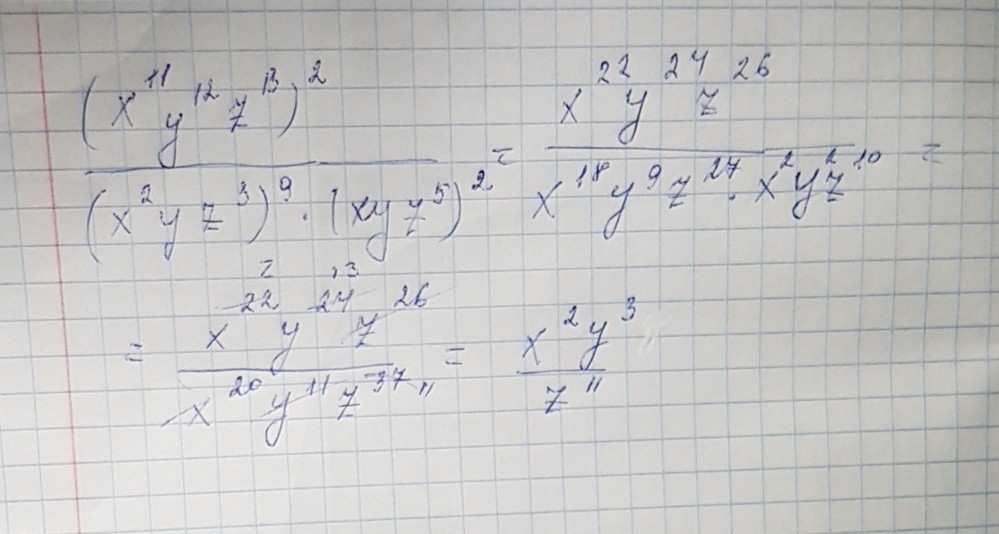 (x^11 y^12 z^13)^2 / (x^2 y z^3)^9 · (xyz^5)^2 = x^22 y^24 z^26 / x^18 y^9 z^27 · x^2 y^2 z^10 =
= x^22 y^24 z^26 / x^20 y^11 z^37 = x^2 y^3 / z^11